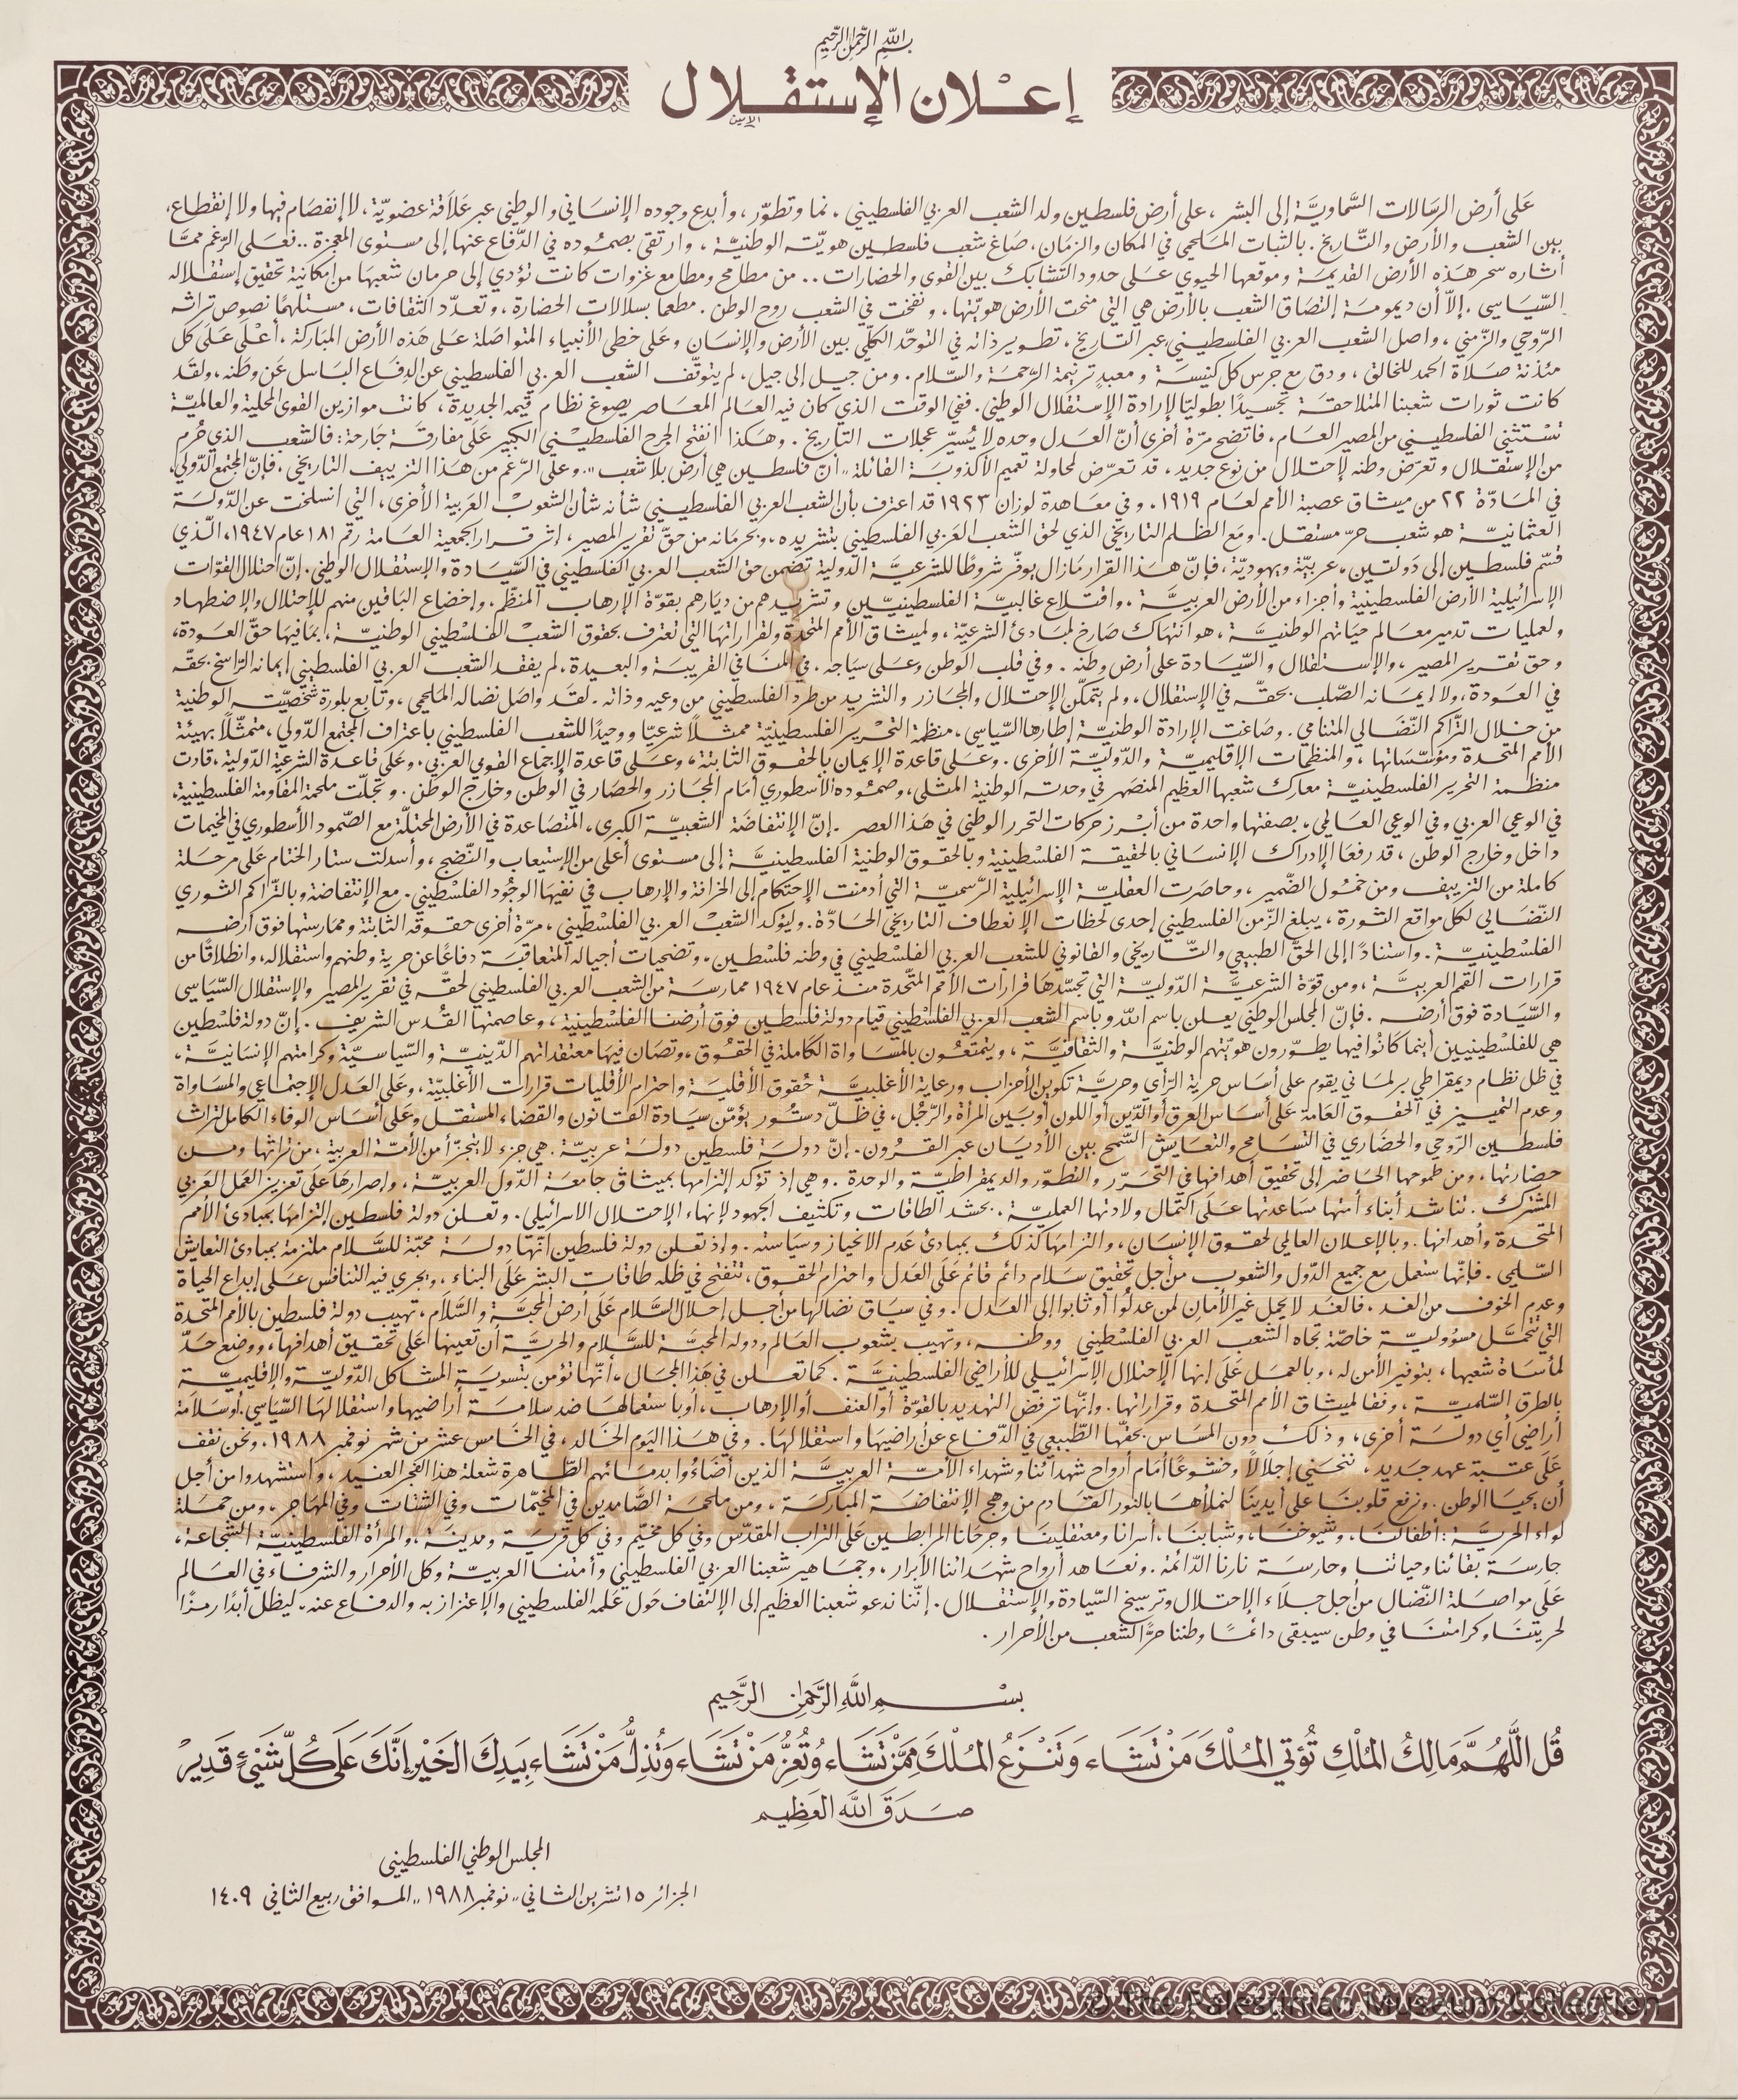 بسم الله الرّحمن الرّحيم
إعـلان الإستقـلال
عَلى أرض الرسَالات السَّماويَّة إلى البشر، على أرض فلسطين ولد الشعب العربي الفلسطيني، نما وتطوّر، وأبدع وجوده الإنساني والوطني عبر علاقة عضويّة، لا إنفصام فيها ولا إنقطاع،
بين الشعب والأرض والتّاريخ. بالثبات الملحمي في المكان والزمان، صاغ شعب فلسطين هويّته الوطنيّة، وارتقى بصموده في الدّفاع عنها إلى مستوى المعجزة.. فعلى الرغم ممّا
أثاره سحر هذه الأرض القديمة وموقعها الحيوي على حدود التشابك بين القوى والحضارات.. من مطامح ومطامع غزوات كانت تؤدي إلى حرمان شعبها من إمكانية تحقيق إستقلاله
السّياسي، إلاّ أن ديمومة إلتصاق الشعب بالأرض هي التي منحت الأرض هويّتها، ونفخت في الشعب روح الوطن. مطعما بسلالات الحضارة، وتعدّد الثقافات، مستلهمًا نصوص تراثه
الرّوحي والزّمني، واصل الشعب العربي الفلسطيني عبر التاريخ، تطوير ذاته في التوحّد الكلّي بين الأرض والإنسان وعلى خطى الأنبياء المتواصلة على هذه الأرض المباركة، أعلى على كل
مئذنة صلاة الحمد للخالق، ودق مع جرس كل كنيسة ومعبد ترنيمة الرّحمة والسّلام. ومن جيل إلى جيل، لم يتوقّف الشعب العربي الفلسطيني عن الدفاع الباسل عن وطنه، ولقد
كانت ثورات شعبنا المتلاحقة تجسيدًا بطوليّا لإرادة الإستقلال الوطني. ففي الوقت الذي كان فيه العالم المعاصر يصوغ نظام قيمه الجديدة، كانت موازين القوى المحلية والعالميّة
تستثني الفلسطيني من المصير العام، فاتضح مرّة أخرى أنّ العدل وحده لا يُسيّر عجلات التاريخ. وهكذا انفتح الجرح الفلسطيني الكبير على مفارقة جارحة: فالشعب الذي حُرم
من الإستقلال وتعرّض وطنه لإحتلال من نوع جديد، قد تعرّض لمحاولة تعميم الأكذوبة القائلة "أنّ فلسطين هي أرض بلا شعب". وعلى الرّغم من هذا التزييف التاريخي، فإنّ المجتمع الدّولي،
في المادّة ٢٢ من ميثاق عصبة الأمم لعام ١٩١٩، وفي معاهدة لوزان ١٩٢٣ قد اعترف بأن الشعب العربي الفلسطيني شأنه شأن الشعوب العربية الأخرى، التي انسلخت عن الدّولة
العثمانيّة هو شعب حرّ مستقل. ومع الظلم التاريخي الذي لحق الشعب العربي الفلسطيني بتشريده، وبحرمانه من حقّ تقرير المصير، إثر قرار الجمعية العامة رقم ١٨١ عام ١٩٤٧، الّذي
قسّم فلسطين إلى دولتين، عربيّة ويهوديّة، فإنّ هذا القرار مازال يوفّر شروطًا للشرعيّة الدولية تضمن حق الشعب العربي الفلسطيني في السّيادة والإستقلال الوطني. إنّ احتلال القوّات
الإسرائيلية الأرض الفلسطينية وأجزاء من الأرض العربيّة، واقتلاع غالبيّة الفلسطينيّين وتشريدهم من ديارهم بقوّة الإرهاب المنظّم، وإخضاع الباقين منهم للإحتلال والإضطهاد
ولعمليات تدمير معالم حياتهم الوطنيّة، هو انتهاك صارخ لمبادئ الشرعيّة، ولميثاق الأمم المتحدة ولقراراتها التي تعترف بحقوق الشعب الفلسطيني الوطنيّة، بما فيها حقّ العودة،
وحق تقرير المصير، والإستقلال والسّيادة على أرض وطنه. وفي قلب الوطن وعلى سياجه، في المنافي القريبة والبعيدة، لم يفقد الشعب العربي الفلسطيني إيمانه الرّاسخ بحقّه
في العودة، ولا إيمانه الصّلب بحقّه في الإستقلال، ولم يتمكّن الإحتلال والمجازر والتشريد من طرد الفلسطيني من وعيه وذاته. لقد واصل نضاله الملحمي، وتابع بلورة شخصيّته الوطنية
من خلال التّراكم النّضالي المتنامي. وصاغت الإرادة الوطنيّة إطارها السّياسي، منظمة التحرير الفلسطينيّة ممثلاً شرعيّا ووحيدًا للشعب الفلسطيني باعتراف المجتمع الدّولي، متمثّلاً بهيئة
الأمم المتحدة ومؤسّساتها، والمنظمات الإقليميّة والدّوليّة الأخرى. وعلى قاعدة الإيمان بالحقوق الثابتة، وعلى قاعدة الإجماع القومي العربي، وعلى قاعدة الشرعيّة الدّولية، قادت
منظمة التحرير الفلسطينيّة معارك شعبها العظيم المنصهر في وحدته الوطنية المثلى، وصموده الأسطوري أمام المجازر والحصار في الوطن وخارج الوطن. وتجلّت ملحمة المقاومة الفلسطينية،
في الوعي العربي وفي الوعي العالمي، بصفتها واحدة من أبرز حركات التحرر الوطني في هذا العصر. إنّ الإنتفاضة الشعبيّة الكبرى، المتصاعدة في الأرض المحتلّة مع الصّمود الأسطوري في المخيمات
داخل وخارج الوطن، قد رفعا الإدراك الإنساني بالحقيقة الفلسطينية وبالحقوق الوطنية الفلسطينيّة إلى مستوى أعلى من الإستيعاب والنّضج، وأسدلت ستار الختام على مرحلة
كاملة من التزييف ومن خمول الضّمير، وحاصرت العقليّة الإسرائيلية الرّسميّة التي أدمنت الإحتكام إلى الخرافة والإرهاب في نفيها الوجود الفلسطيني. مع الإنتفاضة وبالتّراكم الثوري
النّضالي لكل مواقع الثورة، يبلغ الزّمن الفلسطيني إحدى لحظات الإنعطاف التاريخي الحادّة. وليؤكد الشعب العربي الفلسطيني، مرّة أخرى حقوقه الثابتة وممارستها فوق أرضه
الفلسطينيّة. واستنادًا إلى الحقّ الطبيعي والتّاريخي والقانوني للشعب العربي الفلسطيني في وطنه فلسطين، وتضحيات أجياله المتعاقبة دفاعًا عن حرية وطنهم واستقلاله، وانطلاقًا من
قرارات القمم العربيّة، ومن قوّة الشرعيّة الدّوليّة التي تجسّدها قرارات الأمم المتّحدة منذ عام ١٩٤٧ ممارسة من الشعب العربي الفلسطيني لحقّه في تقرير المصير والإستقلال السّياسي
والسّيادة فوق أرضه. فإنّ المجلس الوطني يعلن باسم الله وباسم الشعب العربي الفلسطيني قيام دولة فلسطين فوق أرضنا الفلسطينية، وعاصمتها القدس الشريف. إنّ دولة فلسطين
هي للفلسطينيين أينما كانوا فيها يطوّرون هويّتهم الوطنيّة والثقافيّة، ويتمتعون بالمساواة الكاملة في الحقوق، وتصان فيها معتقداتهم الدّينيّة والسّياسيّة وكرامتهم الإنسانيّة،
في ظل نظام ديمقراطي برلماني يقوم على أساس حرية الرّأي وحريّة تكوين الأحزاب ورعاية الأغلبيّة حقوق الأقلية واحترام الأقليات قرارات الأغلبيّة، وعلى العدل الإجتماعي والمساواة
وعدم التمييز في الحقوق العامة على أساس العرق أو الدّين أو اللون أو بين المرأة والرّجل، في ظلّ دستور يؤمّن سيادة القانون والقضاء المستقل وعلى أساس الوفاء الكامل لتراث
فلسطين الرّوحي والحضاري في التسامح والتعايش السّمح بين الأديان عبر القرون. إنّ دولة فلسطين دولة عربيّة. هي جزء لا يتجزّأ من الأمّة العربية، من تراثها ومن
حضارتها، ومن طموحها الحاضر إلى تحقيق أهدافها في التحرّر والتطوّر والديمقراطيّة والوحدة. وهي إذ تؤكد إلتزامها بميثاق جامعة الدّول العربيّة، وإصرارها على تعزيز العمل العربي
المشترك. تناشد أبناء أمتها مساعدتها على اكتمال ولادتها العمليّة، بحشد الطاقات وتكثيف الجهود لإنهاء الإحتلال الاسرائيلي. وتعلن دولة فلسطين إلتزامها بمبادئ الأمم
المتحدة وأهدافها. وبالإعلان العالمي لحقوق الإنسان، والتزامها كذلك بمبادئ عدم الانحياز وسياسته. وإذ تعلن دولة فلسطين أنّها دولة محبّة للسّلام ملتزمة بمبادئ التعايش
السّلمي. فإنّها ستعمل مع جميع الدّول والشعوب من أجل تحقيق سلام دائم قائم على العدل واحترام الحقوق، تتفتح في ظله طاقات البشر على البناء، ويجري فيه التنافس على إبداع الحياة
وعدم الخوف من الغد. فالغد لا يحمل غير الأمان لمن عدلوا أو ثابوا إلى العدل. وفي سياق نضالها من أجل إحلال السّلام على أرض المحبّة والسّلام، تهيب دولة فلسطين بالأمم المتحدة
التي تتحمّل مسؤوليّة خاصّة تجاه الشعب العربي الفلسطيني ووطنه، وتهيب بشعوب العالم ودوله المحبّة للسّلام والحريّة أن تعينها على تحقيق أهدافها، ووضع حدّ
لمأساة شعبها، بتوفير الأمن له، وبالعمل على إنهاء الإحتلال الإسرائيلي للأراضي الفلسطينيّة. كما تعلن في هذا المجال، أنّها تؤمن بتسوية المشاكل الدّوليّة والإقليميّة
بالطرق السّلميّة، وفقا لميثاق الأمم المتحدة وقراراتها. وانّها ترفض التهديد بالقوّة أو العنف أو الإرهاب، أو باستعمالها ضد سلامة أراضيها واستقلالها السّياسي، أو سلامة
أراضي أي دولة أخرى، وذلك دون المساس بحقّها الطّبيعي في الدّفاع عن أراضيها واستقلالها. وفي هذا اليوم الخالد، في الخامس عشر من شهر نوفمبر ١٩٨٨، ونحن نقف
على عتبة عهد جديد، ننحني إجلالاً وخشوعًا أمام أرواح شهدائنا وشهداء الأمّة العربيّة الذين أضاءوا بدمائهم الطّاهرة شعلة هذا الفجر العنيد، واستشهدوا من أجل
أن يحيا الوطن. ونرفع قلوبنا على أيدينا لنملأها بالنور القادم من وهج الإنتفاضة المباركة، ومن ملحمة الصّامدين في المخيّمات وفي الشتات وفي المهاجر، ومن حملة
لواء الحريّة: أطفالنا، وشيوخنا، وشبابنا، أسرانا ومعتقلينا وجرحانا المرابطين على التراب المقدّس وفي كل مخيّم وفي كل قرية ومدينة، والمرأة الفلسطينيّة الشجاعة،
حارسة بقائنا وحياتنا وحارسة نارنا الدّائمة. ونعاهد أرواح شهدائنا الأبرار، وجماهير شعبنا العربي الفلسطيني وأمتنا العربيّة وكل الأحرار والشرفاء في العالم
على مواصلة النّضال من أجل جلاء الإحتلال وترسيخ السّيادة والإستقلال. إنّنا ندعو شعبنا العظيم إلى الإلتفاف حول علمه الفلسطيني والإعتزاز به والدفاع عنه. ليظل أبدًا رمزًا
لحريتنا وكرامتنا في وطن سيبقى دائمًا وطننا حرًّا لشعب من الأحرار.
بسم الله الرّحمن الرّحيم
قُل اللَّهُمَّ مَالِكَ المُلْكِ تُؤتي المُلْكَ مَنْ تَشَاء وَتَنْزعُ المُلْكَ مِمَّنْ تَشَاء وَتُعِزُّ مَنْ تَشَاء وَتُذِلُّ مَنْ تَشَاء بِيَدِكَ الخَيْر إنَّكَ عَلى كُلّ شَيْئٍ قَدِيرْ
صَدَقَ الله العَظِيم
المجلس الوطني الفلسطيني
الجزائر ١٥ تشرين الثاني "نوفمبر ١٩٨٨" الموافق ربيع الثاني ١٤٠٩
© The Palestinian Museum Collection